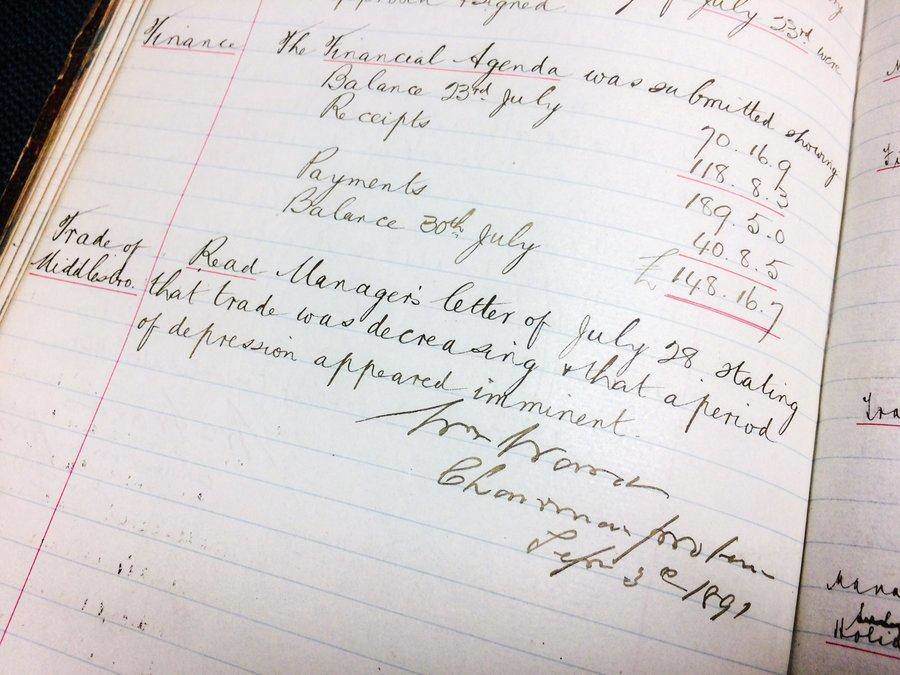 signed of July 23rd were
Finance The Financial Agenda was submitted showing
Balance 23rd July 70.16.9
Receipts 118.8.3
189.5.0
Payments 40.8.5
Balance 30th July £148.16.7
Trade of
Middlesbro. Read Manager's letter of July 28 stating
that trade was decreasing & that a period
of depression appeared imminent.
Chairman pro tem
Sepr 3d 1891
Holid